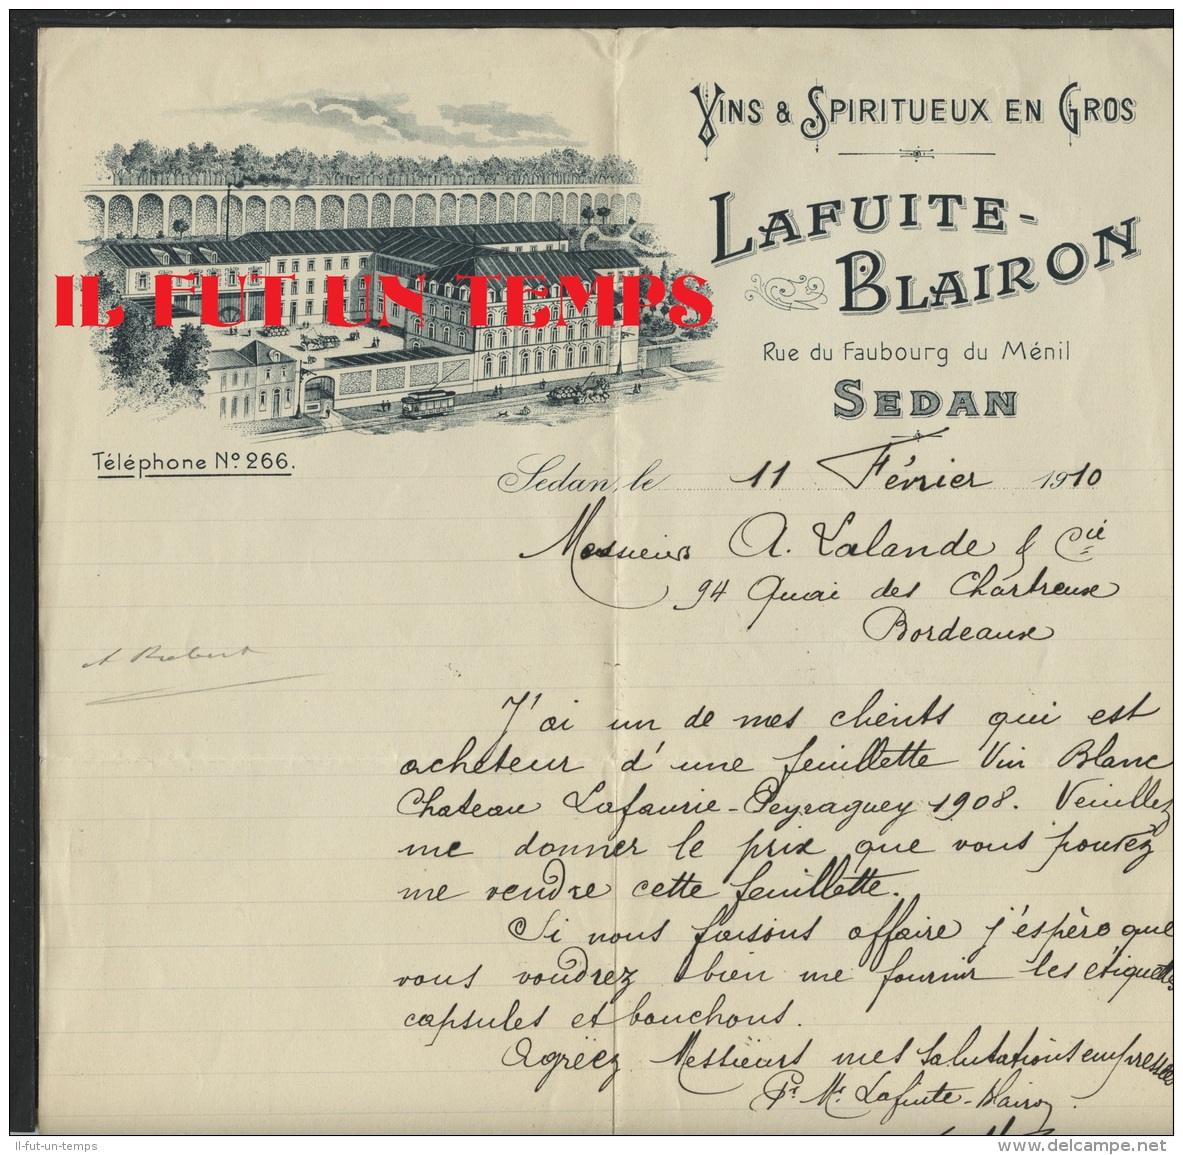 VINS & SPIRITUEUX EN GROS
LAFUITE-
BLAIRON
Rue du Faubourg du Ménil
SEDAN
IL FUT UN TEMPS
Téléphone No 266.
Sedan, le 11 Février 1910
Messieurs A. Lalande & Cie
94 Quai des Chartreux
Bordeaux
J'ai un de mes clients qui est
acheteur d'une feuillette Vin Blanc
Chateau Lafaurie-Peyraguey 1908. Veuillez
me donner le prix que vous pouvez
me vendre cette feuillette.
Si nous faisons affaire j'espère que
vous voudrez bien me fournir les étiquettes
capsules et bouchons.
Agréez Messieurs mes salutations empressées
Pr. Mr. Lafuite-Blairon
Il-fut-un-temps
delcampe.net